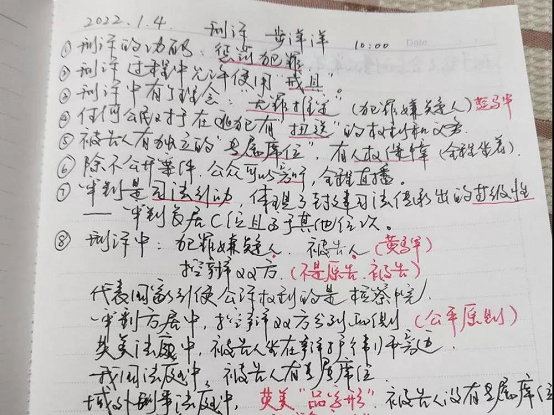 2022.1.4. 刑诉 步洋洋 10:00 Date
① 刑诉的功能:惩罚犯罪.
② 刑诉过程中允许使用"戒具".
③ 刑诉中有了理念:无罪推定(犯罪嫌疑人)黄马甲
④ 任何公民对于在逃犯有"扭送"的权利和义务.
⑤ 被告人有独立的"专属席位",有人权保障(全程坐着).
⑥ 除不公开案件,公众可以旁听,全程直播.
⑦ "审判是司法行动,体现了封建司法传承出的等级性
——审判长居C位且高于其他位次.
⑧ 刑诉中:犯罪嫌疑人.被告人(黄马甲)
控辩双方.(不是原告.被告)
代表国家行使公诉权利的是检察院.
审判方居中,控辩双方分列两侧(公平原则)
英美法庭中,被告人坐在辩护律师旁边.
我国法庭中,被告人有专属席位.
域外刑事法庭中,英美"品字形"被告人没有专属席位